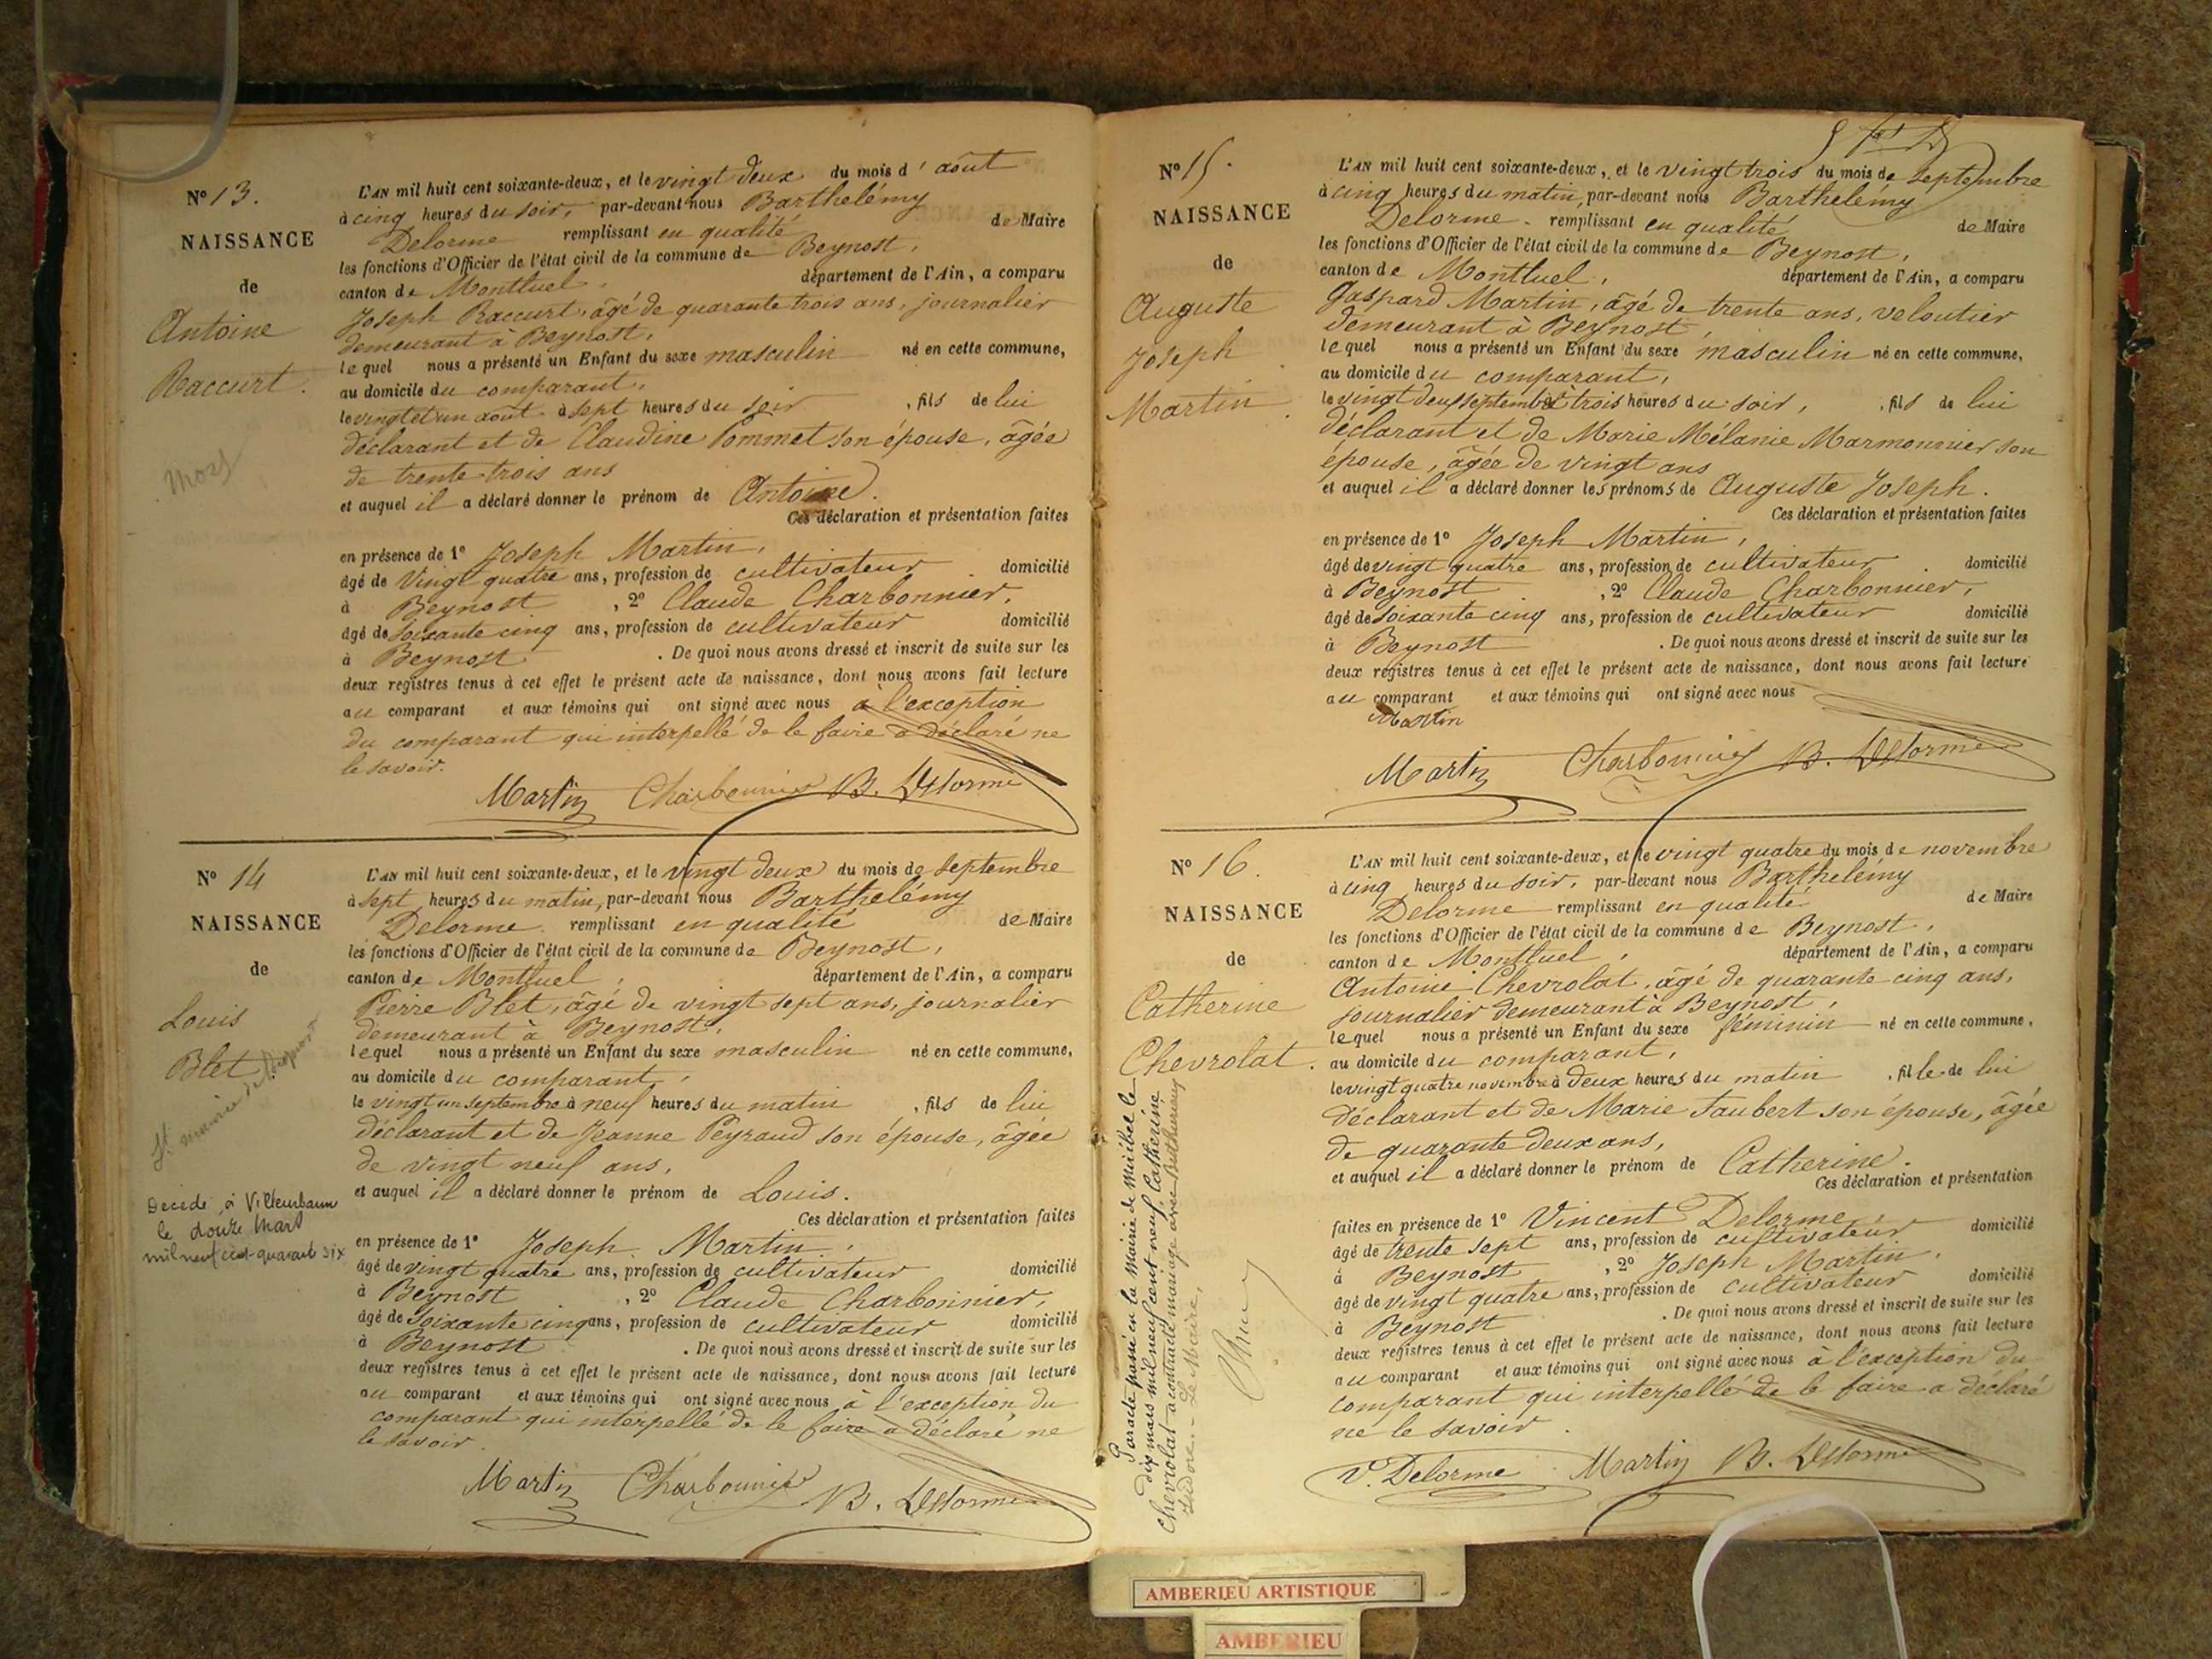 N° 13.
NAISSANCE
de
Antoine
Raccurt.
Mort
L'AN mil huit cent soixante-deux, et le vingt deux du mois d'août
à cinq heures du soir, par-devant nous Barthelémy
Delorme remplissant en qualité de Maire
les fonctions d'Officier de l'état civil de la commune de Beynost,
canton de Montluel, département de l'Ain, a comparu
Joseph Raccurt, âgé de quarante trois ans, journalier
demeurant à Beynost,
lequel nous a présenté un Enfant du sexe masculin né en cette commune,
au domicile du comparant,
le vingt et un août à sept heures du soir, fils de lui
déclarant et de Claudine Pommet son épouse, âgée
de trente-trois ans
et auquel il a déclaré donner le prénom de Antoine.
Ces déclaration et présentation faites
en présence de 1° Joseph Martin,
âgé de vingt quatre ans, profession de cultivateur domicilié
à Beynost, 2° Claude Charbonnier,
âgé de soixante cinq ans, profession de cultivateur domicilié
à Beynost. De quoi nous avons dressé et inscrit de suite sur les
deux registres tenus à cet effet le présent acte de naissance, dont nous avons fait lecture
au comparant et aux témoins qui ont signé avec nous à l'exception
du comparant qui interpellé de le faire a déclaré ne
le savoir.
Martin Charbonnier B. Delorme
N° 14
NAISSANCE
de
Louis
Blet.
Décédé à Villeurbanne
le douze Mars
mil neuf cent quarante six
L'AN mil huit cent soixante-deux, et le vingt deux du mois de septembre
à sept heures du matin, par-devant nous Barthelémy
Delorme remplissant en qualité de Maire
les fonctions d'Officier de l'état civil de la commune de Beynost,
canton de Montluel, département de l'Ain, a comparu
Pierre Blet, âgé de vingt sept ans, journalier
demeurant à Beynost,
lequel nous a présenté un Enfant du sexe masculin né en cette commune,
au domicile du comparant,
le vingt un septembre à neuf heures du matin, fils de lui
déclarant et de Jeanne Peyraud son épouse, âgée
de vingt neuf ans,
et auquel il a déclaré donner le prénom de Louis.
Ces déclaration et présentation faites
en présence de 1° Joseph Martin,
âgé de vingt quatre ans, profession de cultivateur domicilié
à Beynost, 2° Claude Charbonnier,
âgé de soixante cinq ans, profession de cultivateur domicilié
à Beynost. De quoi nous avons dressé et inscrit de suite sur les
deux registres tenus à cet effet le présent acte de naissance, dont nous avons fait lecture
au comparant et aux témoins qui ont signé avec nous à l'exception du
comparant qui interpellé de le faire a déclaré ne
le savoir.
Martin Charbonnier B. Delorme
N° 15.
NAISSANCE
de
Auguste
Joseph
Martin.
L'AN mil huit cent soixante-deux, et le vingt trois du mois de septembre
à cinq heures du matin, par-devant nous Barthelémy
Delorme remplissant en qualité de Maire
les fonctions d'Officier de l'état civil de la commune de Beynost,
canton de Montluel, département de l'Ain, a comparu
Gaspard Martin, âgé de trente ans, veloutier
demeurant à Beynost,
lequel nous a présenté un Enfant du sexe masculin né en cette commune,
au domicile du comparant,
le vingt deux septembre à trois heures du soir, fils de lui
déclarant et de Marie Mélanie Marmonnier son
épouse, âgée de vingt ans
et auquel il a déclaré donner les prénoms de Auguste Joseph.
Ces déclaration et présentation faites
en présence de 1° Joseph Martin,
âgé de vingt quatre ans, profession de cultivateur domicilié
à Beynost, 2° Claude Charbonnier,
âgé de soixante cinq ans, profession de cultivateur domicilié
à Beynost. De quoi nous avons dressé et inscrit de suite sur les
deux registres tenus à cet effet le présent acte de naissance, dont nous avons fait lecture
au comparant et aux témoins qui ont signé avec nous
Martin
Martin Charbonnier B. Delorme
N° 16.
NAISSANCE
de
Catherine
Chevrolat.
Par acte passé en la Mairie de Miribel le
dix mars mil neuf cent neuf, Catherine
Chevrolat a contracté mariage avec
Isidore. - Le Maire,
L'AN mil huit cent soixante-deux, et le vingt quatre du mois de novembre
à cinq heures du soir, par-devant nous Barthelémy
Delorme remplissant en qualité de Maire
les fonctions d'Officier de l'état civil de la commune de Beynost,
canton de Montluel, département de l'Ain, a comparu
Antoine Chevrolat, âgé de quarante cinq ans,
journalier demeurant à Beynost,
lequel nous a présenté un Enfant du sexe féminin né en cette commune,
au domicile du comparant,
le vingt quatre novembre à deux heures du matin, fille de lui
déclarant et de Marie Jaubert son épouse, âgée
de quarante deux ans,
et auquel il a déclaré donner le prénom de Catherine.
Ces déclaration et présentation
faites en présence de 1° Vincent Delorme,
âgé de trente sept ans, profession de cultivateur domicilié
à Beynost, 2° Joseph Martin,
âgé de vingt quatre ans, profession de cultivateur domicilié
à Beynost. De quoi nous avons dressé et inscrit de suite sur les
deux registres tenus à cet effet le présent acte de naissance, dont nous avons fait lecture
au comparant et aux témoins qui ont signé avec nous à l'exception du
comparant qui interpellé de le faire a déclaré
ne le savoir.
V. Delorme Martin B. Delorme
AMBERIEU ARTISTIQUE
AMBERIEU